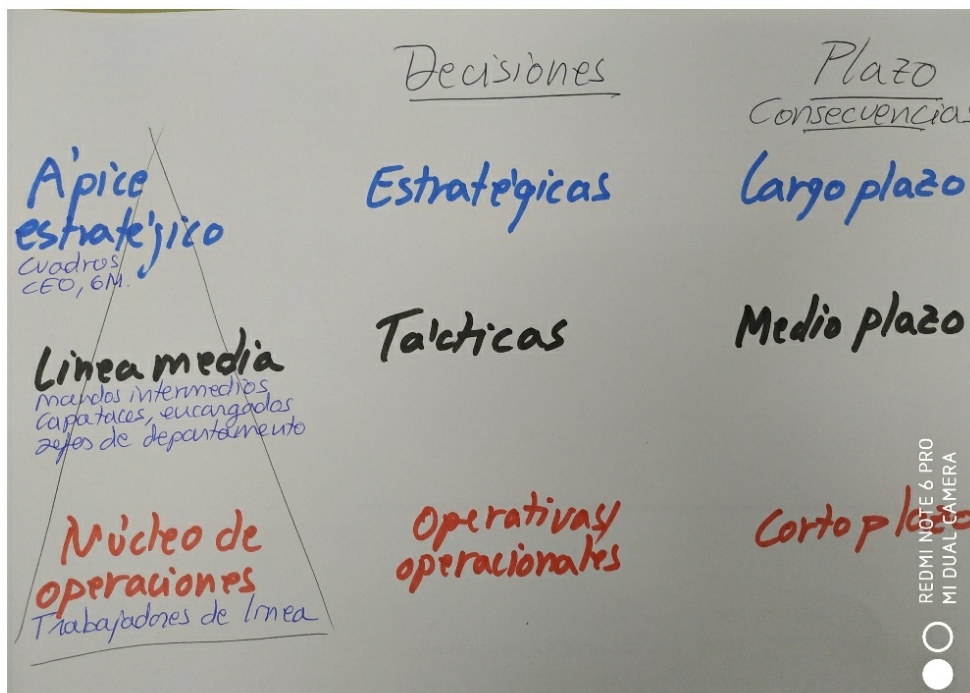 Decisiones
Plazo
Consecuencias
Ápice
estratégico
Cuadros
CEO, GM.
Estratégicas
Largo plazo
Línea media
mandos intermedios
capataces, encargados
jefes de departamento
Tácticas
Medio plazo
Núcleo de
operaciones
Trabajadores de línea
Operativas/
operacionales
Corto plazo
REDMI NOTE 6 PRO
MI DUAL CAMERA